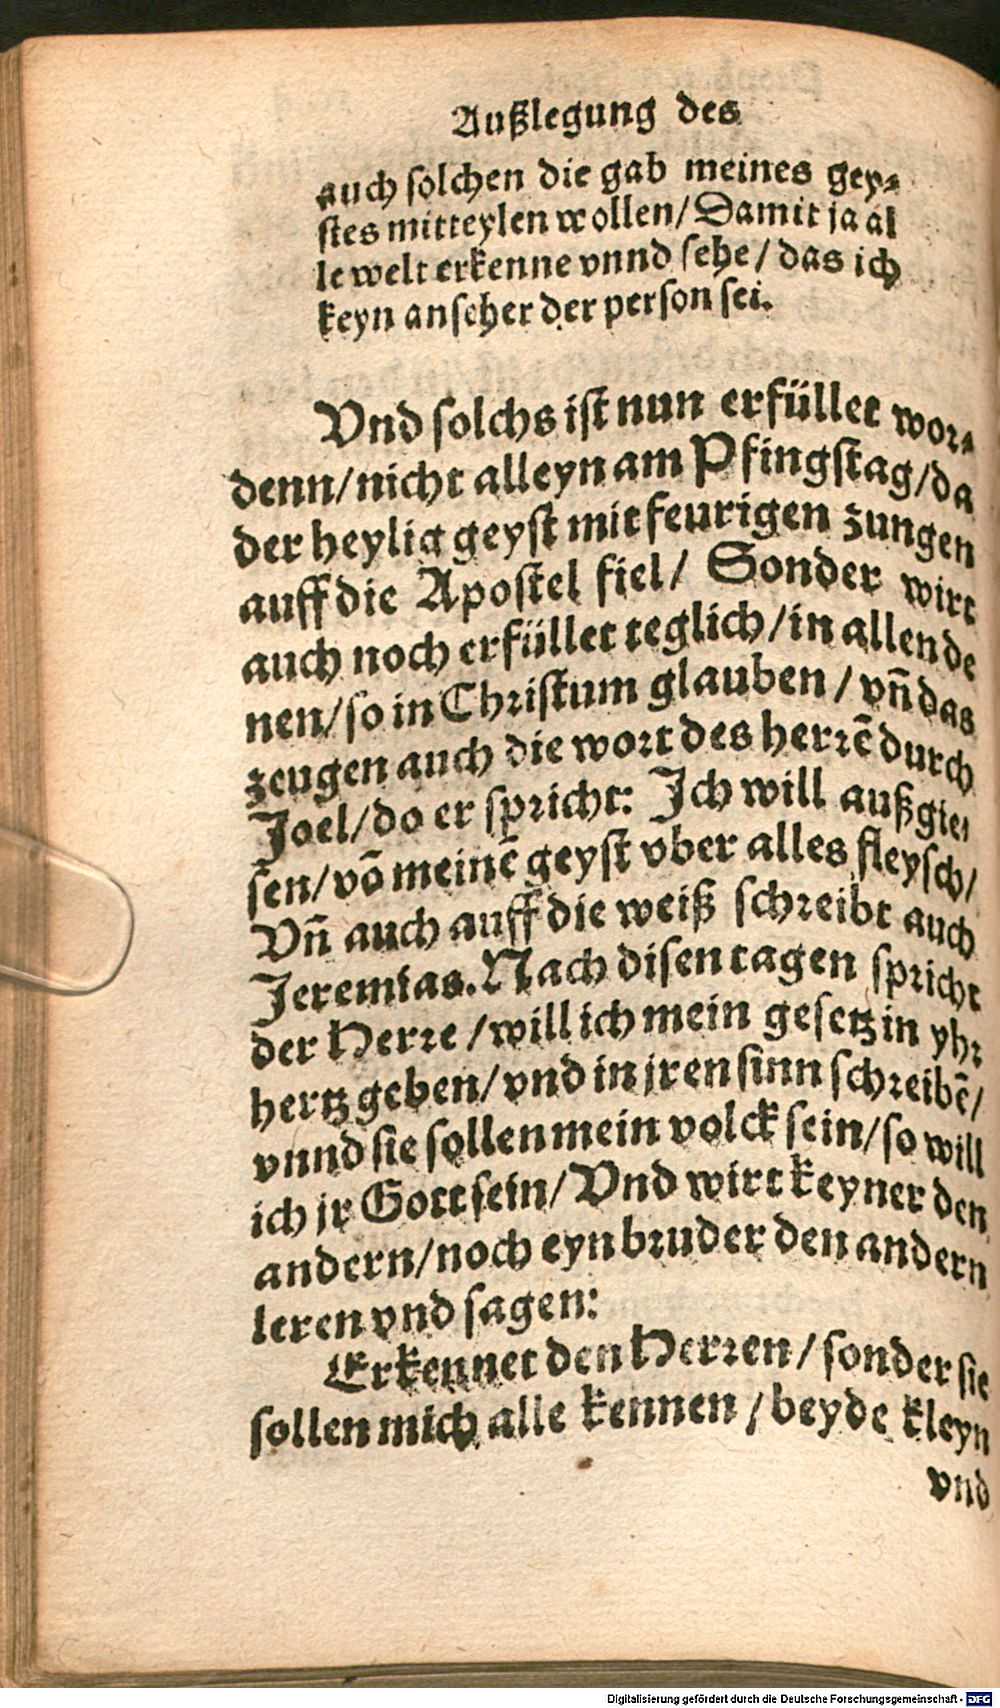 Außlegung des
auch solchen die gab meines gey⸗
stes mitteylen wollen/Damit ja al
le welt erkenne vnnd sehe/ das ich
keyn anseher der person sei.
Vnd solchs ist nun erfüllet wor⸗
denn/nicht alleyn am Pfingstag/da
der heylig geyst mit feurigen zungen
auff die Apostel fiel/ Sonder wirt
auch noch erfüllet teglich/in allen de
nen/so in Christum glauben/vñ das
zeugen auch die wort des herrẽ durch
Joel/do er spricht: Ich will außgies
sen/võ meinẽ geyst vber alles fleysch/
Vñ auch auff die weiß schreibt auch
Jeremias. Nach disen tagen spricht
der Herre/will ich mein gesetz in yhr
hertz geben/vnd in jren sinn schreibẽ/
vnnd sie sollen mein volck sein/so will
ich jr Gott sein/Vnd wirt keyner den
andern/noch eyn bruder den andern
leren vnd sagen:
Erkennet den Herren/sonder sie
sollen mich alle kennen/beyde kleyn
vnd
Digitalisierung gefördert durch die Deutsche Forschungsgemeinschaft - DFG